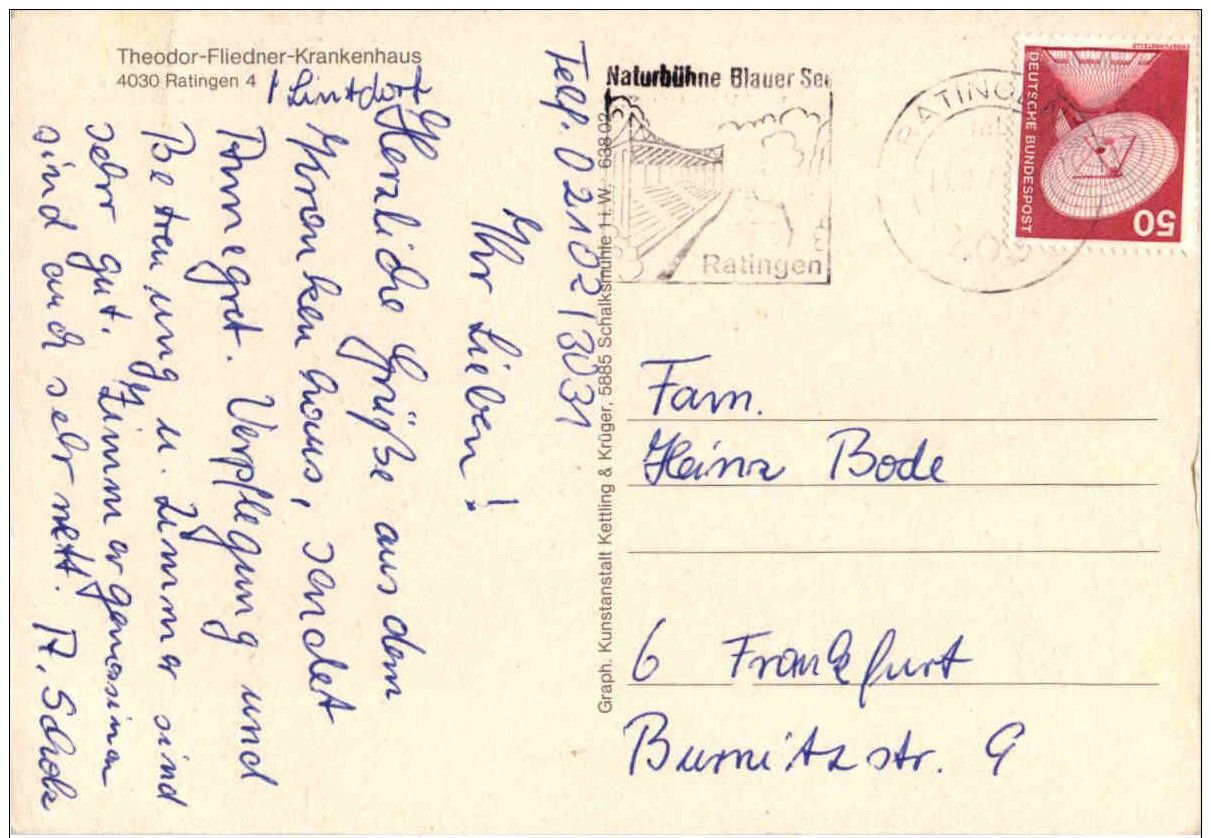 Theodor-Fliedner-Krankenhaus
4030 Ratingen 4
Lintdorf
Telf. 02102 / 3031
Ihr Lieben!
Herzliche Grüße aus dem
Krankenhaus, sendet
Annegret. Verpflegung und
Betreuung u. Zimmer sind
sehr gut. Zimmergenossinen
sind auch sehr nett. A. Scholz
Graph. Kunstanstalt Kettling & Krüger, 5885 Schalksmühle 1 i. W. 63802
Naturbühne Blauer See
Ratingen
RATINGEN
DEUTSCHE BUNDESPOST
50
Fam.
Heinz Bode
6 Frankfurt
Burnitzstr. 9